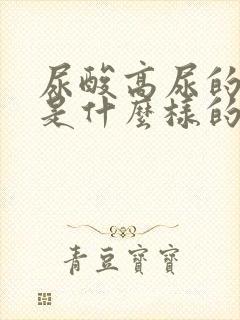 尿酸高尿的
是什麼樣的
青豆寶寶